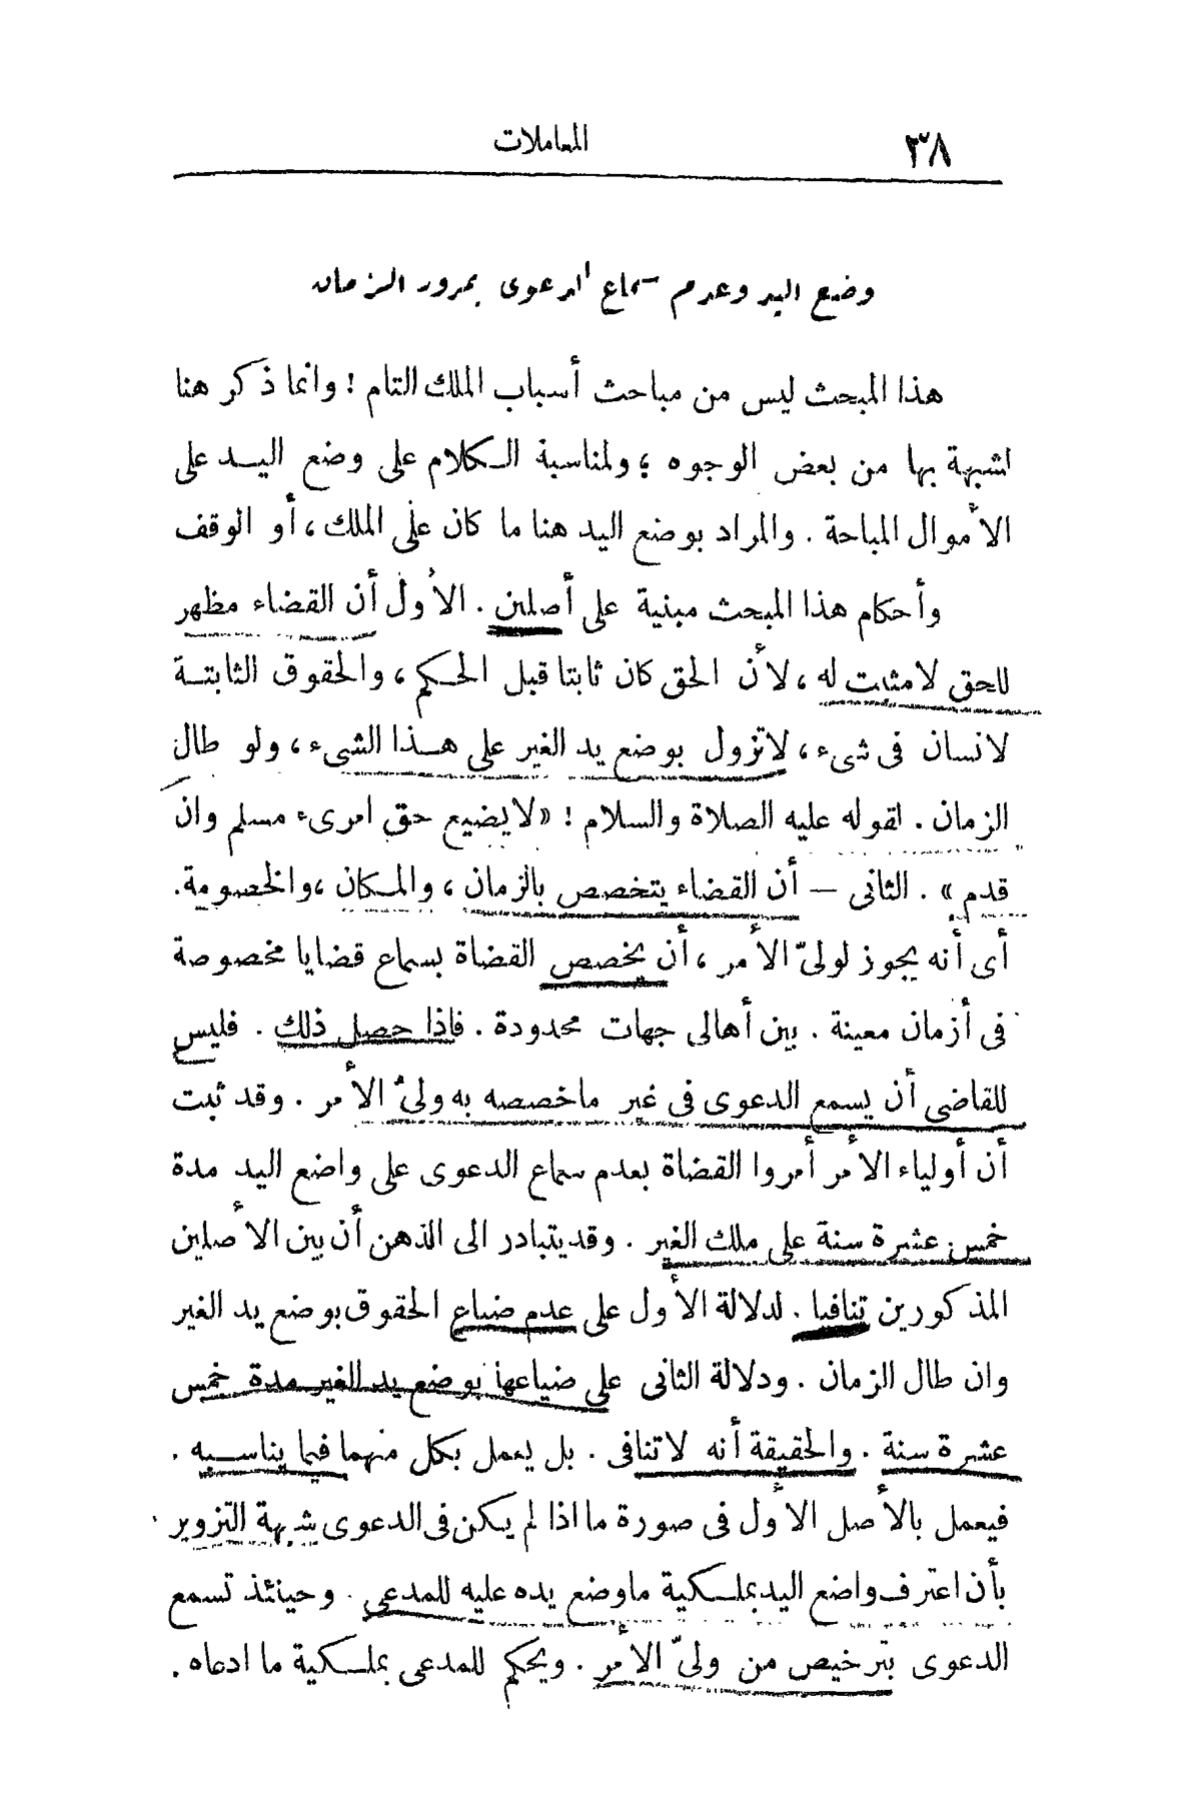 ٣٨
المعاملات
وضع اليد وعدم سماع الدعوى بمرور الزمان
هذا المبحث ليس من مباحث أسباب الملك التام ! وانما ذكر هنا
لشبهة بها من بعض الوجوه ؛ ولمناسبة الكلام على وضع اليد على
الأموال المباحة . والمراد بوضع اليد هنا ما كان على الملك ، أو الوقف
وأحكام هذا المبحث مبنية على أصلين . الأول أن القضاء مظهر
للحق لا مثبت له ، لأن الحق كان ثابتا قبل الحكم ، والحقوق الثابتة
لانسان فى شىء ، لا تزول بوضع يد الغير على هذا الشىء ، ولو طال
الزمان . لقوله عليه الصلاة والسلام ! «لا يضيع حق امرىء مسلم وان
قدم » . الثانى — أن القضاء يتخصص بالزمان ، والمكان ، والخصومة .
أى أنه يجوز لولىّ الأمر ، أن يخصص القضاة بسماع قضايا مخصوصة
فى أزمان معينة . بين أهالى جهات محدودة . فاذا حصل ذلك . فليس
للقاضى أن يسمع الدعوى فى غير ماخصصه به ولىُّ الأمر . وقد ثبت
أن أولياء الأمر أمروا القضاة بعدم سماع الدعوى على واضع اليد مدة
خمس عشرة سنة على ملك الغير . وقد يتبادر الى الذهن أن بين الأصلين
المذكورين تنافيا . لدلالة الأول على عدم ضياع الحقوق بوضع يد الغير
وان طال الزمان . ودلالة الثانى على ضياعها بوضع يد الغير مدة خمس
عشرة سنة . والحقيقة أنه لا تنافى . بل يعمل بكل منهما فيما يناسبه .
فيعمل بالأصل الأول فى صورة ما اذا لم يكن فى الدعوى شبهة التزوير
بأن اعترف واضع اليد بملكية ماوضع يده عليه للمدعى . وحينئذ تسمع
الدعوى بترخيص من ولىّ الأمر . ويحكم للمدعى بملكية ما ادعاه .